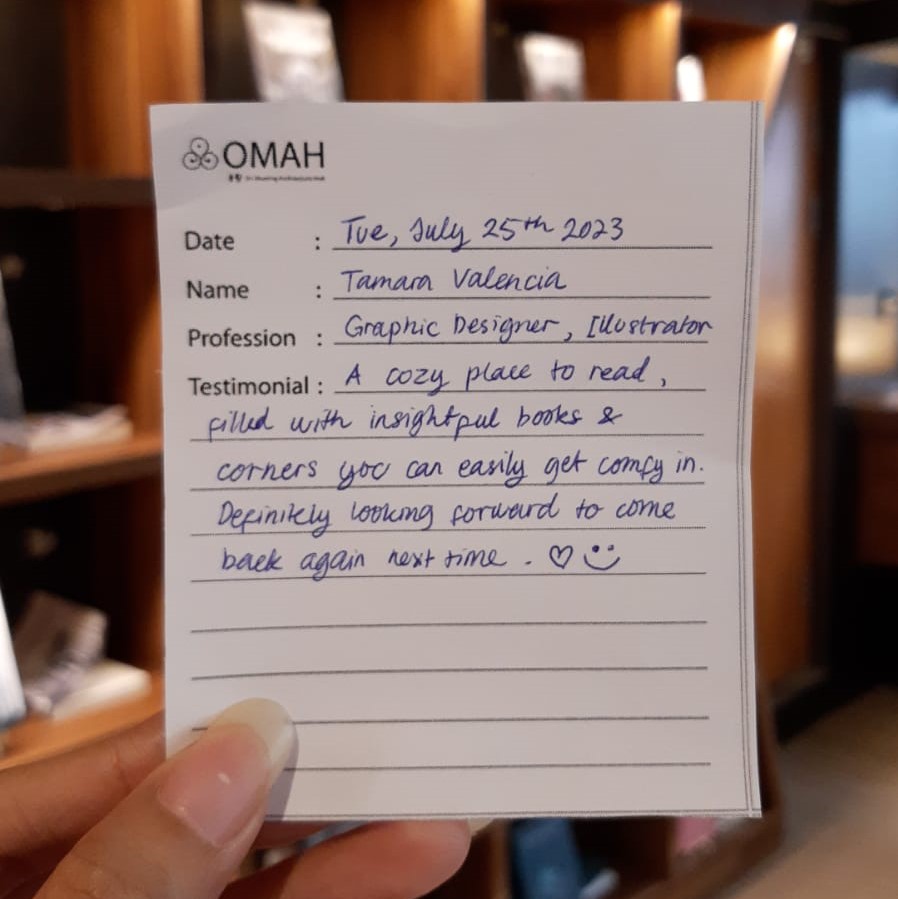 OMAH
Date : Tue, July 25th 2023
Name : Tamara Valencia
Profession : Graphic Designer, Illustrator
Testimonial : A cozy place to read,
filled with insightful books &
corners you can easily get comfy in.
Definitely looking forward to come
back again next time. ♡